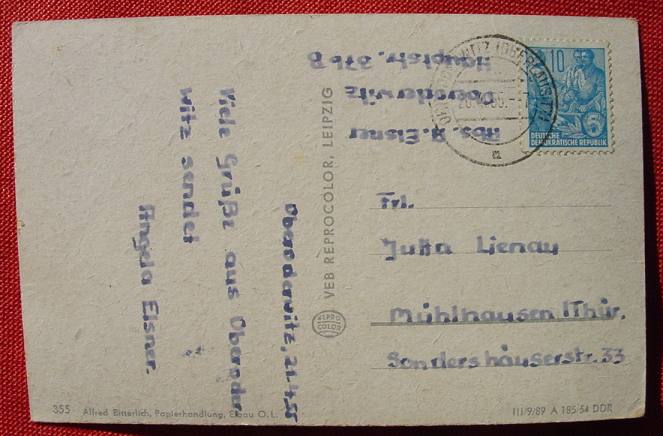 Oderwitz, 21.4.55
Viele Grüße aus Oberoder
witz sendet
Angela Eisner.
Abs. A. Eisner
Oberoderwitz
Hauptstr. 37b B
Frl.
Jutta Lienau
Mühlhausen (Thür.
Sondershäuserstr. 33
VEB REPROCOLOR, LEIPZIG
REPRO
COLOR
10
DEUTSCHE
DEMOKRATISCHE REPUBLIK
(OBERLAUSITZ)
a
355 Alfred Bitterlich, Papierhandlung, Eibau O. L.
III/9/89 A 185/54 DDR